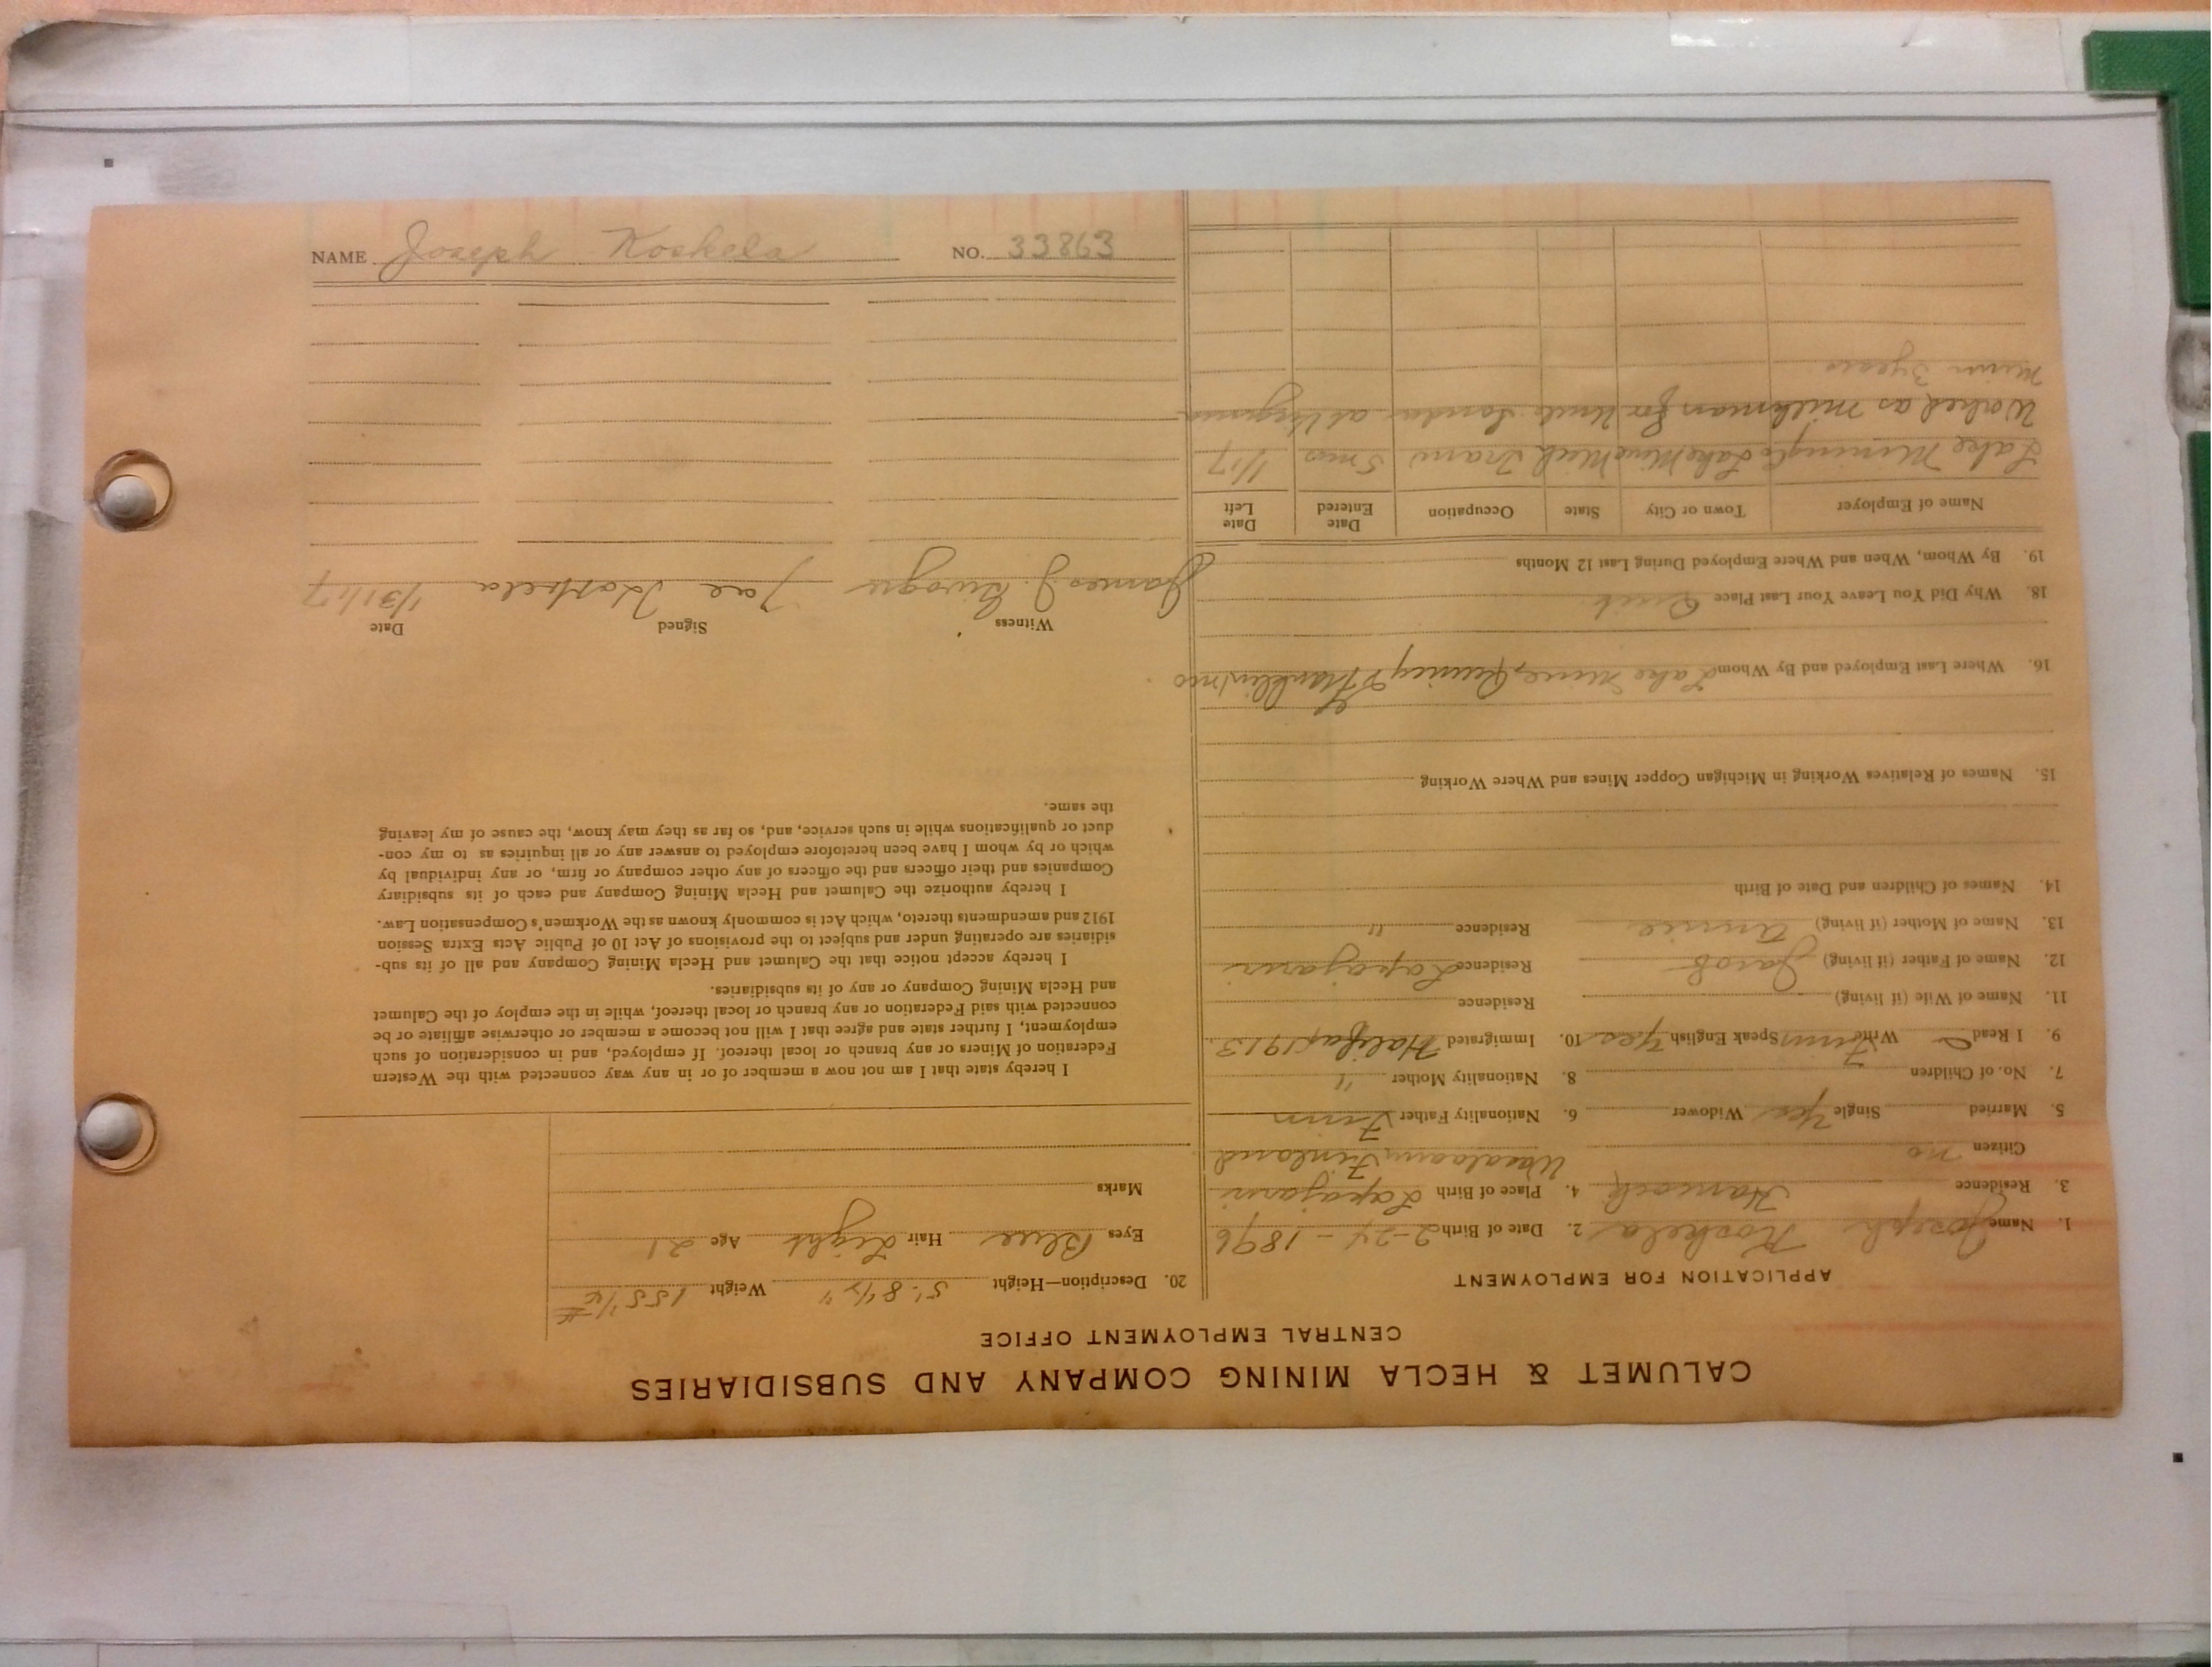 CALUMET & HECLA MINING COMPANY AND SUBSIDIARIES
CENTRAL EMPLOYMENT OFFICE
APPLICATION FOR EMPLOYMENT
1. Name Joseph Koskela 2. Date of Birth 2-24-1896
3. Residence Hancock 4. Place of Birth Lapajarvi
Citizen no Finland
5. Married Single Yes Widower 6. Nationality Father Finn
7. No. of Children 8. Nationality Mother "
9. I Read Write Finn Speak English Yes 10. Immigrated Halifax 1913
11. Name of Wife (if living) Residence
12. Name of Father (if living) Jacob Residence Lapajarvi
13. Name of Mother (if living) Annie Residence "
14. Names of Children and Date of Birth
15. Names of Relatives Working in Michigan Copper Mines and Where Working
16. Where Last Employed and By Whom Lake Mine, Quincy & Franklin
18. Why Did You Leave Your Last Place Quit
19. By Whom, When and Where Employed During Last 12 Months
Name of Employer Town or City State Occupation Date Entered Date Left
Lake Mining Co Lake Mine Mich Tram 5 mos 1/17
Worked as milkman for at Virginia
Minn 3 years
20. Description—Height 5' 8 1/2" Weight 155 1/2 #
Eyes Blue Hair Light Age 21
Marks
I hereby state that I am not now a member of or in any way connected with the Western
Federation of Miners or any branch or local thereof. If employed, and in consideration of such
employment, I further state and agree that I will not become a member or otherwise affiliate or be
connected with said Federation or any branch or local thereof, while in the employ of the Calumet
and Hecla Mining Company or any of its subsidiaries.
I hereby accept notice that the Calumet and Hecla Mining Company and all of its sub-
sidiaries are operating under and subject to the provisions of Act 10 of Public Acts Extra Session
1912 and amendments thereto, which Act is commonly known as the Workmen's Compensation Law.
I hereby authorize the Calumet and Hecla Mining Company and each of its subsidiary
Companies and their officers and the officers of any other company or firm, or any individual by
which or by whom I have been heretofore employed to answer any or all inquiries as to my con-
duct or qualifications while in such service, and, so far as they may know, the cause of my leaving
the same.
Witness Signed Date
James J. Joe Koskela 1/31/17
NAME Joseph Koskela NO. 33863